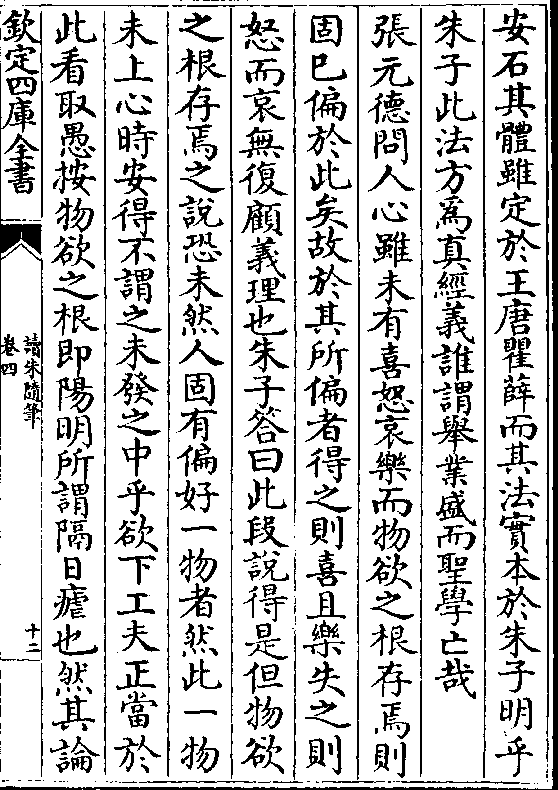 安石其體雖定於王唐瞿薛而其法實本於朱子明乎
朱子此法方爲真經義誰謂舉業盛而聖學亡哉
張元德問人心雖未有喜怒哀樂而物欲之根存焉則
固已偏於此矣故於其所偏者得之則喜且樂失之則
怒而哀無復顧義理也朱子答曰此段說得是但物欲
之根存焉之說恐未然人固有偏好一物者然此一物
未上心時安得不謂之未發之中乎欲下工夫正當於
此看取愚按物欲之根即陽明所謂隔日瘧也然其論
欽定四庫全書
讀朱隨筆
卷四
十二